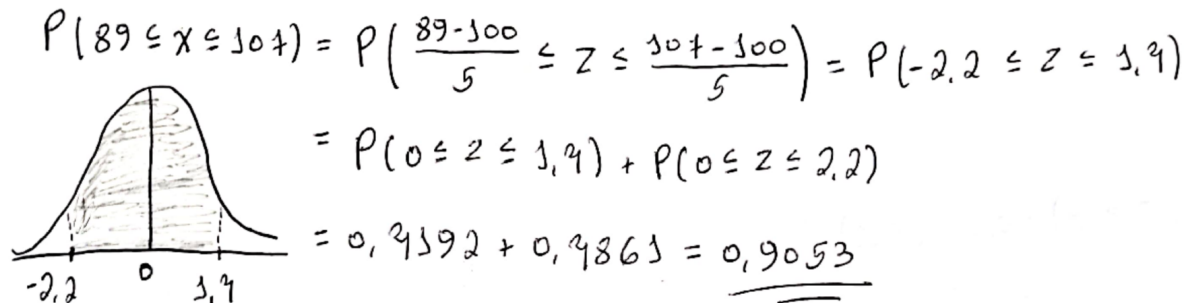 P(89 ≤ X ≤ 107) = P( (89-100)/5 ≤ Z ≤ (107-100)/5 ) = P(-2,2 ≤ Z ≤ 1,4)
= P(0 ≤ Z ≤ 1,4) + P(0 ≤ Z ≤ 2,2)
= 0,4192 + 0,4861 = 0,9053
-2,2 0 1,4